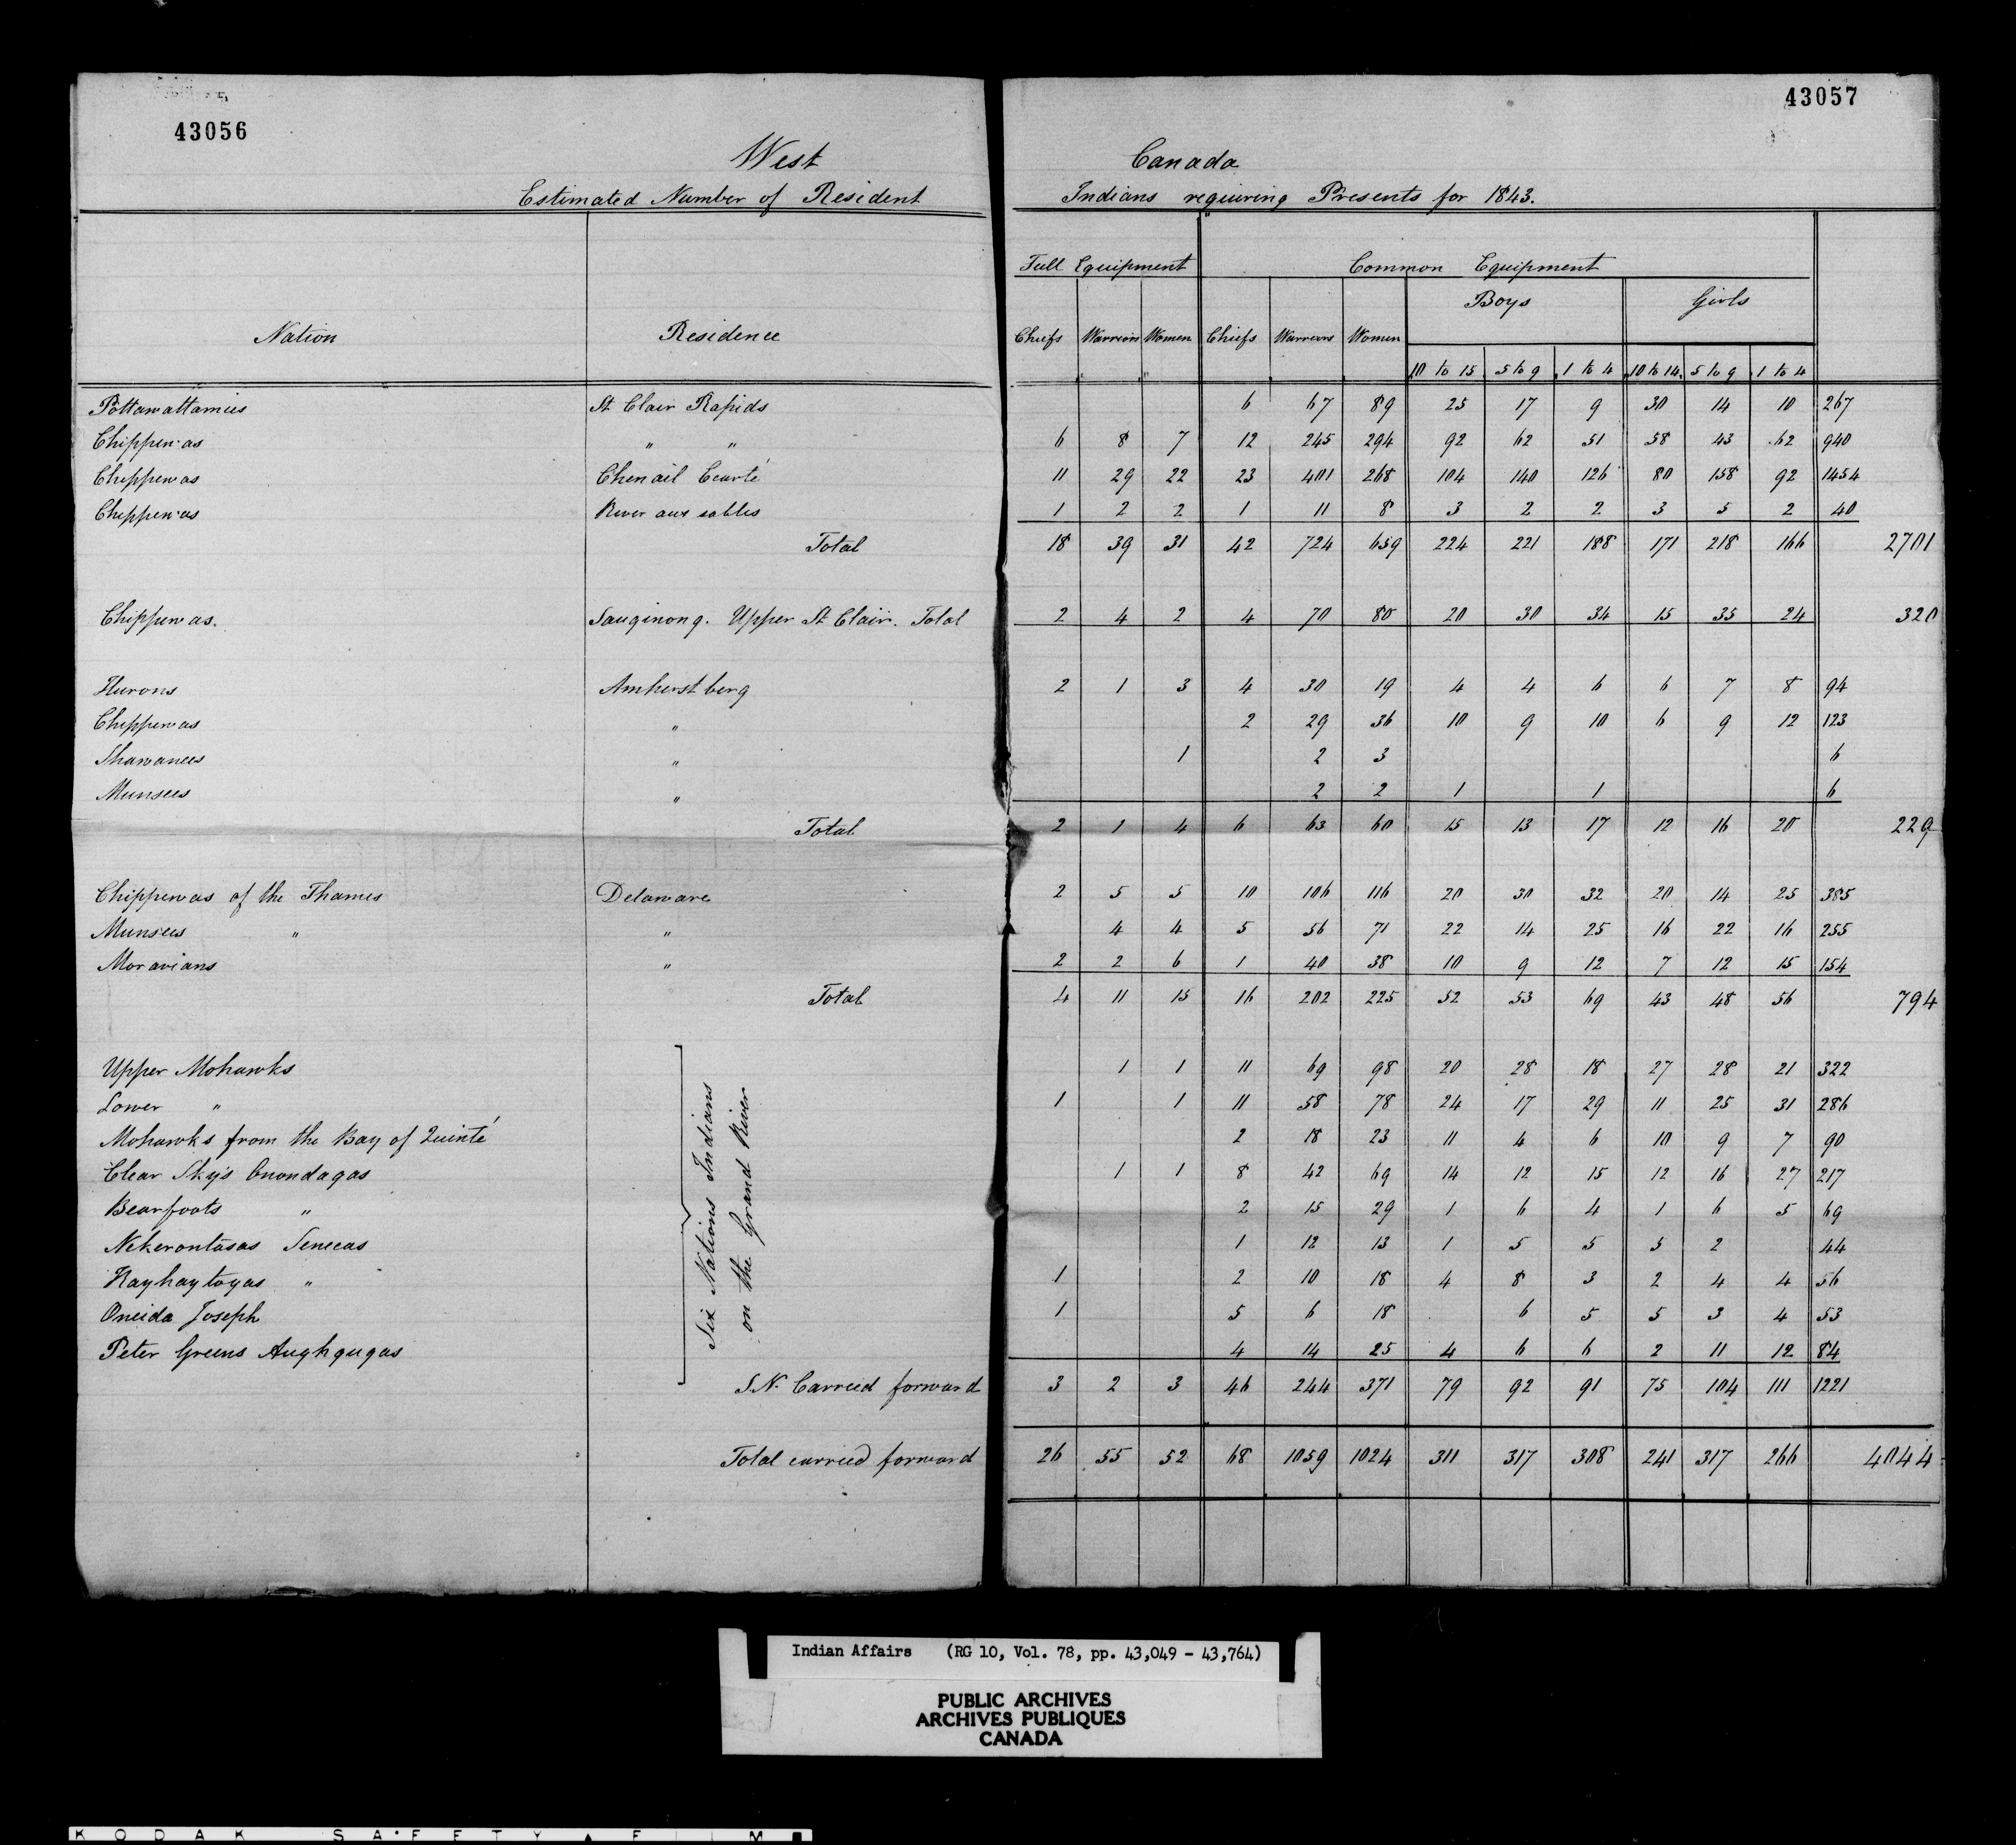 43056
43057
West Canada
Estimated Number of Resident Indians requiring Presents for 1843.
Full Equipment Common Equipment
Boys Girls
Nation Residence Chiefs Warriors Women Chiefs Warriors Women
10 to 15 5 to 9 1 to 4 10 to 14 5 to 9 1 to 4
Pottawattamies St Clair Rapids 6 67 89 25 17 9 30 14 10 267
Chippewas " " 6 8 7 12 245 294 92 62 51 58 43 62 940
Chippewas Chenail Ecarté 11 29 22 23 401 268 104 140 126 80 158 92 1454
Chippewas River aux sables 1 2 2 1 11 8 3 2 2 3 5 2 40
Total 18 39 31 42 724 659 224 221 188 171 218 166 2701
Chippewas. Sauginong. Upper St Clair. Total 2 4 2 4 70 80 20 30 34 15 35 24 320
Hurons Amherstberg 2 1 3 4 30 19 4 4 6 6 7 8 94
Chippewas " 2 29 36 10 9 10 6 9 12 123
Shawanees " 1 2 3 6
Munsees " 2 2 1 1 6
Total 2 1 4 6 63 60 15 13 17 12 16 20 229
Chippewas of the Thames Delaware 2 5 5 10 106 116 20 30 32 20 14 25 385
Munsees " " 4 4 5 56 71 22 14 25 16 22 16 255
Moravians " 2 2 6 1 40 38 10 9 12 7 12 15 154
Total 4 11 15 16 202 225 52 53 69 43 48 56 794
Six Nations Indians
on the Grand River
Upper Mohawks 1 1 11 69 98 20 28 18 27 28 21 322
Lower " 1 1 11 58 78 24 17 29 11 25 31 286
Mohawks from the Bay of Quinté 2 18 23 11 4 6 10 9 7 90
Clear Skys Onondagas 1 1 8 42 69 14 12 15 12 16 27 217
Bearfoots " 2 15 29 1 6 4 1 6 5 69
Nekerontasas Senecas 1 12 13 1 5 5 5 2 44
Kayhaytogas " 1 2 10 18 4 8 3 2 4 4 56
Oneida Joseph 1 5 6 18 6 5 5 3 4 53
Peter Greens Aughgugas 4 14 25 4 6 6 2 11 12 84
S.N. Carried forward 3 2 3 46 244 371 79 92 91 75 104 111 1221
Total carried forward 26 55 52 68 1059 1024 311 317 308 241 317 266 4044
Indian Affairs (RG 10, Vol. 78, pp. 43,049 - 43,764)
PUBLIC ARCHIVES
ARCHIVES PUBLIQUES
CANADA
KODAK SAFETY FILM